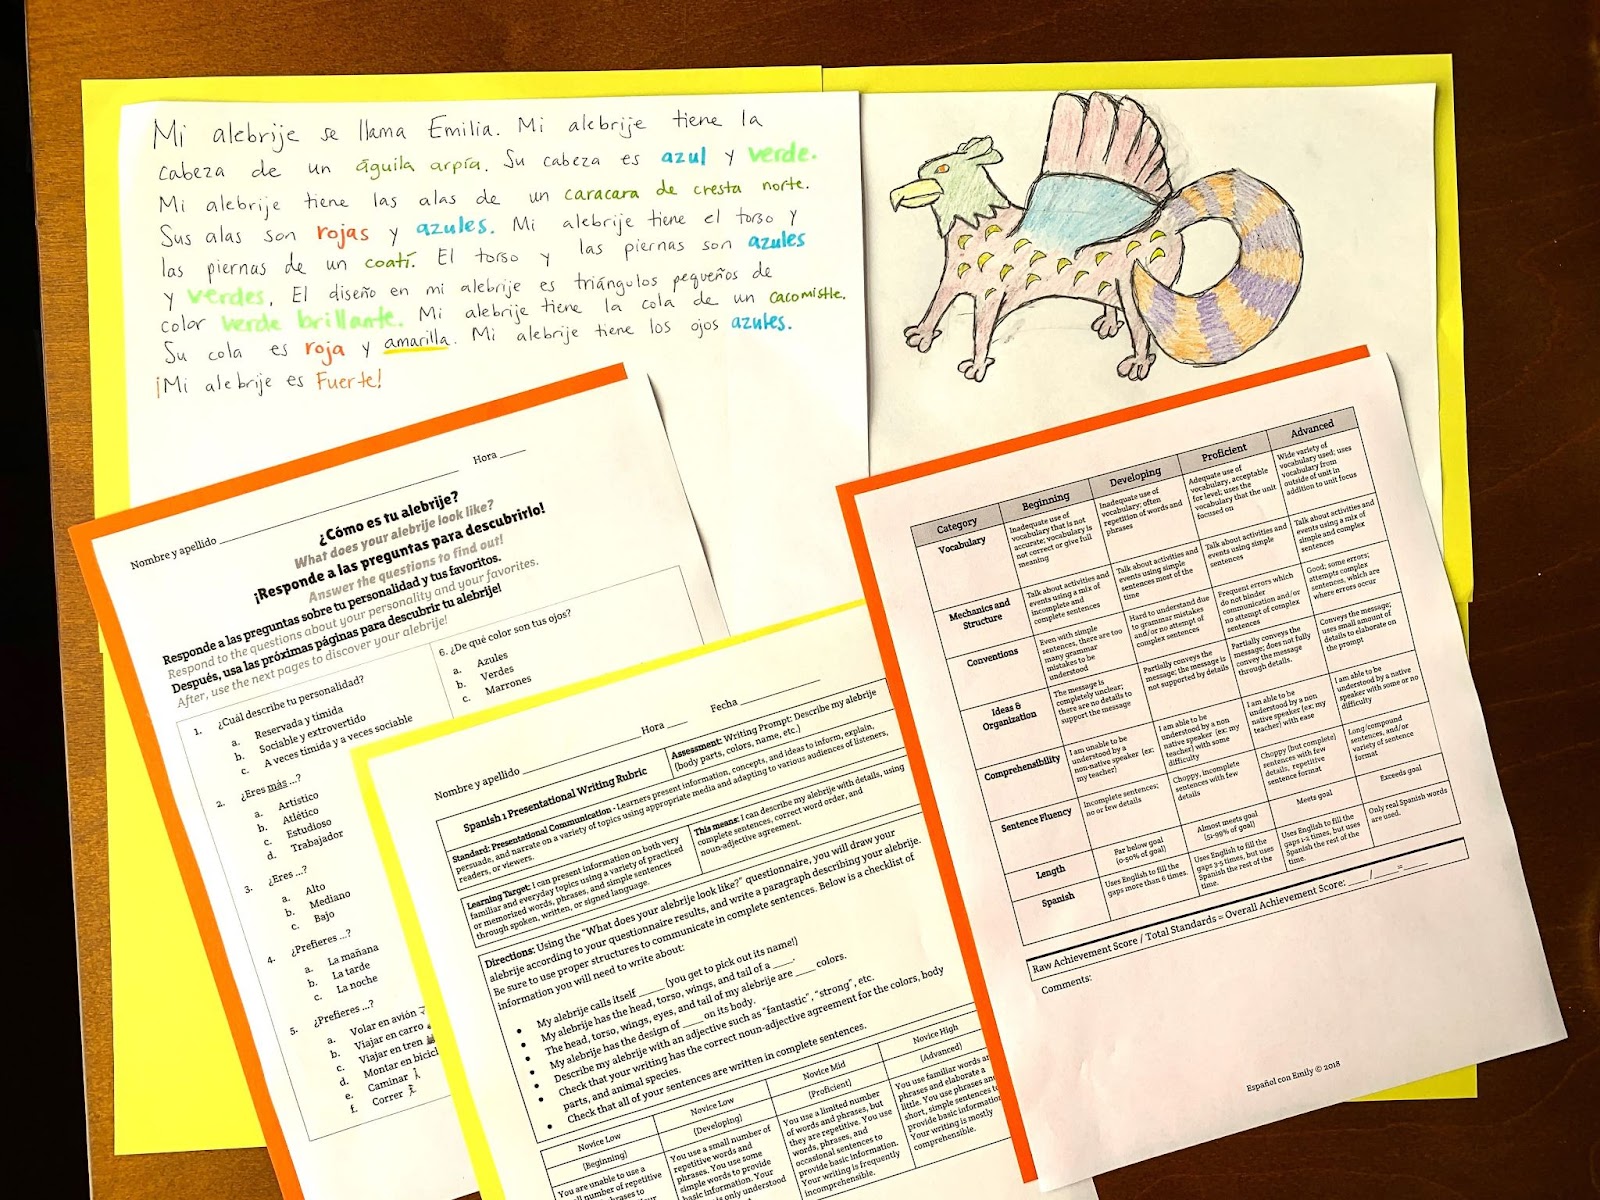 Mi alebrije se llama Emilia. Mi alebrije tiene la
cabeza de un águila arpía. Su cabeza es azul y verde.
Mi alebrije tiene las alas de un caracara de cresta norte.
Sus alas son rojas y azules. Mi alebrije tiene el torso y
las piernas de un coatí. El torso y las piernas son azules
y verdes. El diseño en mi alebrije es triángulos pequeños de
color verde brillante. Mi alebrije tiene la cola de un cacomistle.
Su cola es roja y amarilla. Mi alebrije tiene los ojos azules.
¡Mi alebrije es Fuerte!
Nombre y apellido ____ Hora ____
¿Cómo es tu alebrije?
What does your alebrije look like?
¡Responde a las preguntas para descubrirlo!
Answer the questions to find out!
Responde a las preguntas sobre tu personalidad y tus favoritos.
Respond to the questions about your personality and your favorites.
Después, usa las próximas páginas para descubrir tu alebrije!
After, use the next pages to discover your alebrije!
1. ¿Cuál describe tu personalidad?
a. Reservada y tímida
b. Sociable y extrovertido
c. A veces tímida y a veces sociable
2. ¿Eres más ...?
a. Artístico
b. Atlético
c. Estudioso
d. Trabajador
3. ¿Eres ...?
a. Alto
b. Mediano
c. Bajo
4. ¿Prefieres ...?
a. La mañana
b. La tarde
c. La noche
5. ¿Prefieres ...?
a. Volar en avión
b. Viajar en carro
c. Viajar en tren
d. Montar en bicicl
e. Caminar
f. Correr
6. ¿De qué color son tus ojos?
a. Azules
b. Verdes
c. Marrones
Nombre y apellido ____ Hora ____ Fecha ____
Spanish 1 Presentational Writing Rubric
Assessment: Writing Prompt: Describe my alebrije
(body parts, colors, name, etc.)
Standard: Presentational Communication - Learners present information, concepts, and ideas to inform, explain,
persuade, and narrate on a variety of topics using appropriate media and adapting to various audiences of listeners,
readers, or viewers.
Learning Target: I can present information on both very
familiar and everyday topics using a variety of practiced
or memorized words, phrases, and simple sentences
through spoken, written, or signed language.
This means: I can describe my alebrije with details, using
complete sentences, correct word order, and
noun-adjective agreement.
Directions: Using the "What does your alebrije look like?" questionnaire, you will draw your
alebrije according to your questionnaire results, and write a paragraph describing your alebrije.
Be sure to use proper structures to communicate in complete sentences. Below is a checklist of
information you will need to write about:
• My alebrije calls itself ____ (you get to pick out its name!)
• My alebrije has the head, torso, wings, and tail of a ____.
• The head, torso, wings, eyes, and tail of my alebrije are ____ colors.
• My alebrije has the design of ____ on its body.
• Describe my alebrije with an adjective such as "fantastic", "strong", etc.
• Check that your writing has the correct noun-adjective agreement for the colors, body
parts, and animal species.
• Check that all of your sentences are written in complete sentences.
Novice Low
(Beginning)
You are unable to use a
number of repetitive
phrases to
Novice Low
(Developing)
You use a small number of
repetitive words and
phrases. You use some
simple words to provide
basic information. Your
is only understood
Novice Mid
(Proficient)
You use a limited number
of words and phrases, but
they are repetitive. You use
words, phrases, and
occasional sentences to
provide basic information.
Your writing is frequently
incomprehensible.
Novice High
(Advanced)
You use familiar words
phrases and elaborate a
little. You use phrases and
short, simple sentences to
provide basic information.
Your writing is mostly
comprehensible.
Category Beginning Developing Proficient Advanced
Vocabulary
Inadequate use of
vocabulary that is not
accurate; vocabulary is
not correct or give full
meaning
Inadequate use of
vocabulary; often
repetition of words and
phrases
Adequate use of
vocabulary, acceptable
for level; uses the
vocabulary that the unit
focused on
Wide variety of
vocabulary used; uses
vocabulary from
outside of unit in
addition to unit focus
Mechanics and
Structure
Talk about activities and
events using a mix of
incomplete and
complete sentences
Talk about activities and
events using simple
sentences most of the
time
Talk about activities and
events using simple
sentences
Talk about activities and
events using a mix of
simple and complex
sentences
Conventions
Even with simple
sentences, there are too
many grammar
mistakes to be
understood
Hard to understand due
to grammar mistakes
and/or no attempt of
complex sentences
Frequent errors which
do not hinder
communication and/or
no attempt of complex
sentences
Good; some errors;
attempts complex
sentences, which are
where errors occur
Ideas &
Organization
The message is
completely unclear;
there are no details to
support the message
Partially conveys the
message; the message is
not supported by details
Partially conveys the
message; does not fully
convey the message
through details.
Conveys the message;
uses small amount of
details to elaborate on
the prompt
Comprehensibility
I am unable to be
understood by a
non-native speaker (ex:
my teacher)
I am able to be
understood by a non
native speaker (ex: my
teacher) with some
difficulty
I am able to be
understood by a non
native speaker (ex: my
teacher) with ease
I am able to be
understood by a native
speaker with some or no
difficulty
Sentence Fluency
Incomplete sentences;
no or few details
Choppy, incomplete
sentences with few
details
Choppy (but complete)
sentences with few
details, repetitive
sentence format
Long/compound
sentences, and/or
variety of sentence
format
Length
Far below goal
(0-50% of goal)
Almost meets goal
(51-99% of goal)
Meets goal
Exceeds goal
Spanish
Uses English to fill the
gaps more than 6 times.
Uses English to fill the
gaps 3-5 times, but uses
Spanish the rest of the
time.
Uses English to fill the
gaps 1-2 times, but uses
Spanish the rest of the
time.
Only real Spanish words
are used.
Raw Achievement Score / Total Standards = Overall Achievement Score: ____ / ____ = ____
Comments:
Español con Emily © 2018